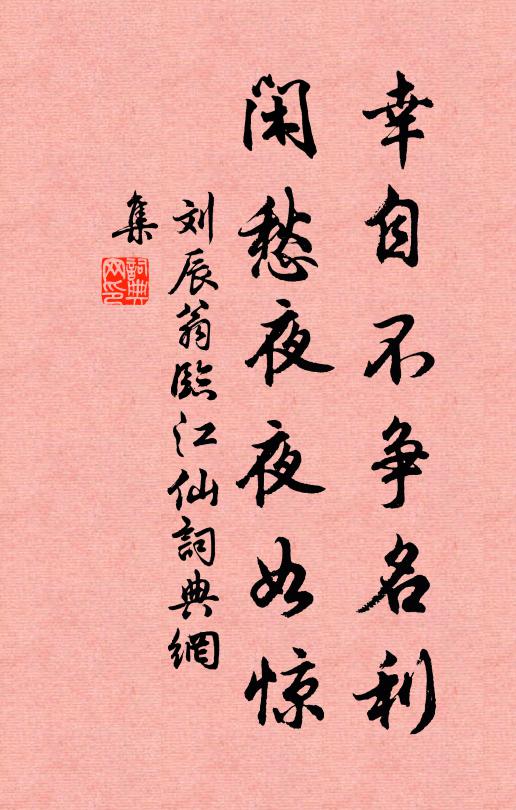 幸自不争名利
闲愁夜夜如惊
刘辰翁臨江仙詞典網
集
詞典網印